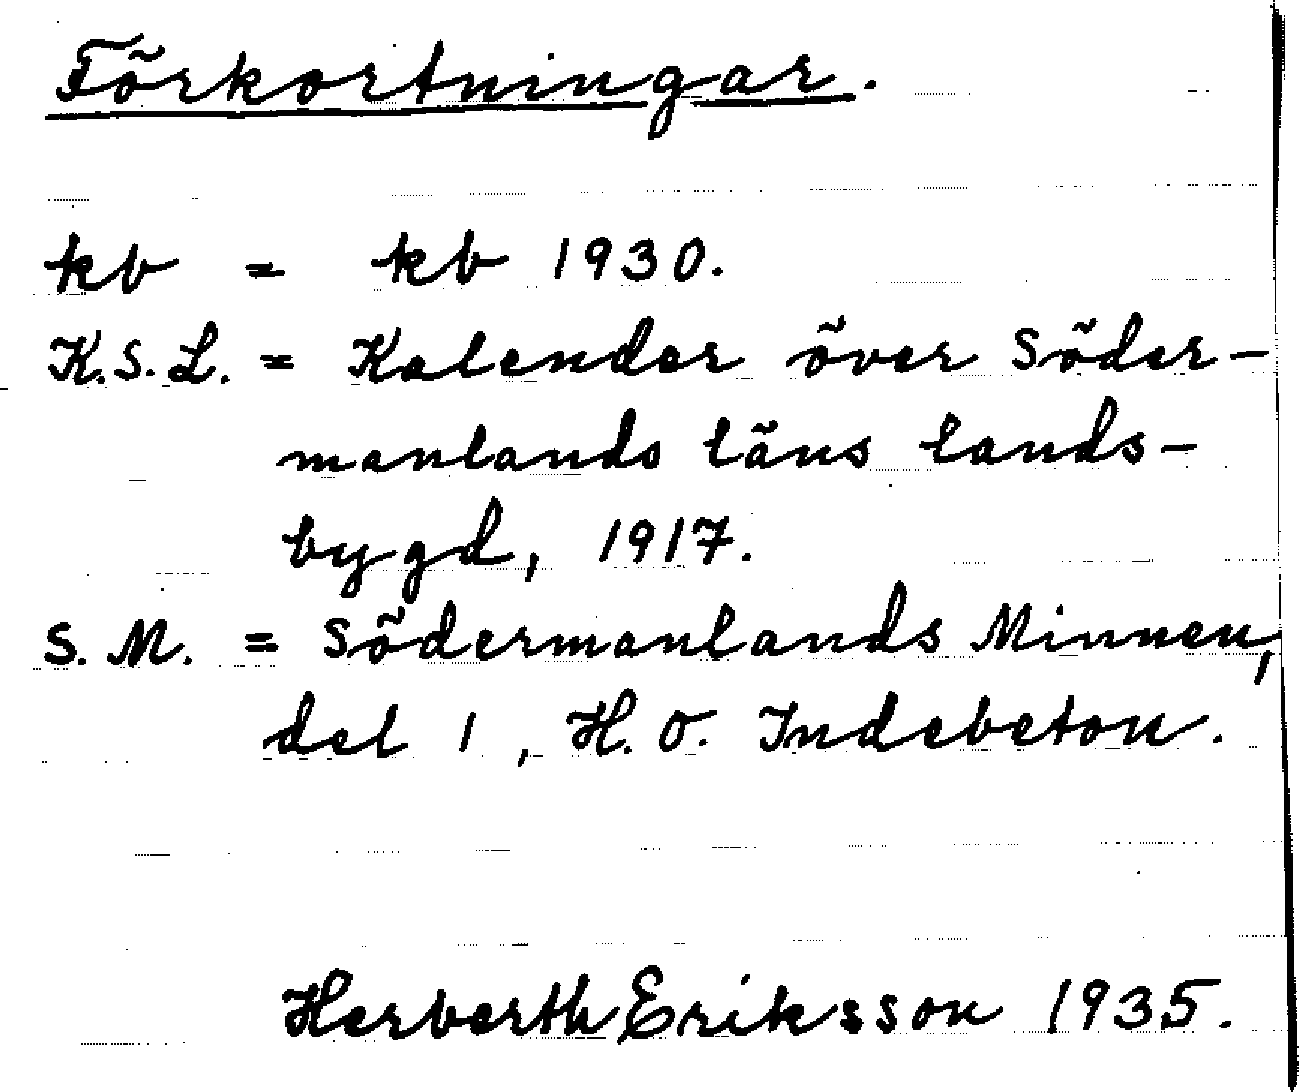 Förkortningar.
kb = kb 1930.
K.S.L. = Kalender över Söder-
manlands läns lands-
bygd, 1917.
S.M. = Södermanlands Minnen,
del 1, H.O. Indebetou.
Herberth Eriksson 1935.